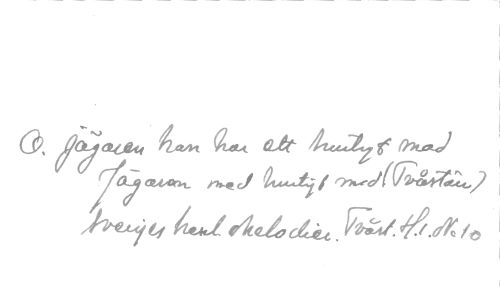 O. Jägaren han har ett hurtigt mod
Jägaren med hurtigt mod (Tvåstäm)
Sveriges melodier. Tvåst. H.1. No. 10